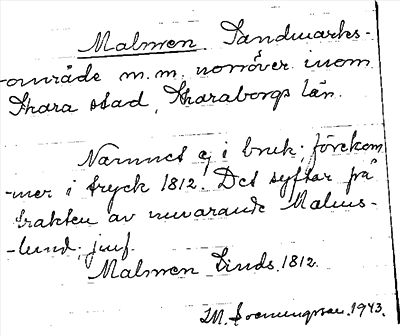 Malmen. Landmarks-
-område m.m. norröver inom
Skara stad, Skaraborgs län.
Namnet ej i bruk; förekom
-mer i tryck 1812. Det syftar på
trakten av nuvarande Malms-
-lund; jmf.
Malmen Linds. 1812.
1943.